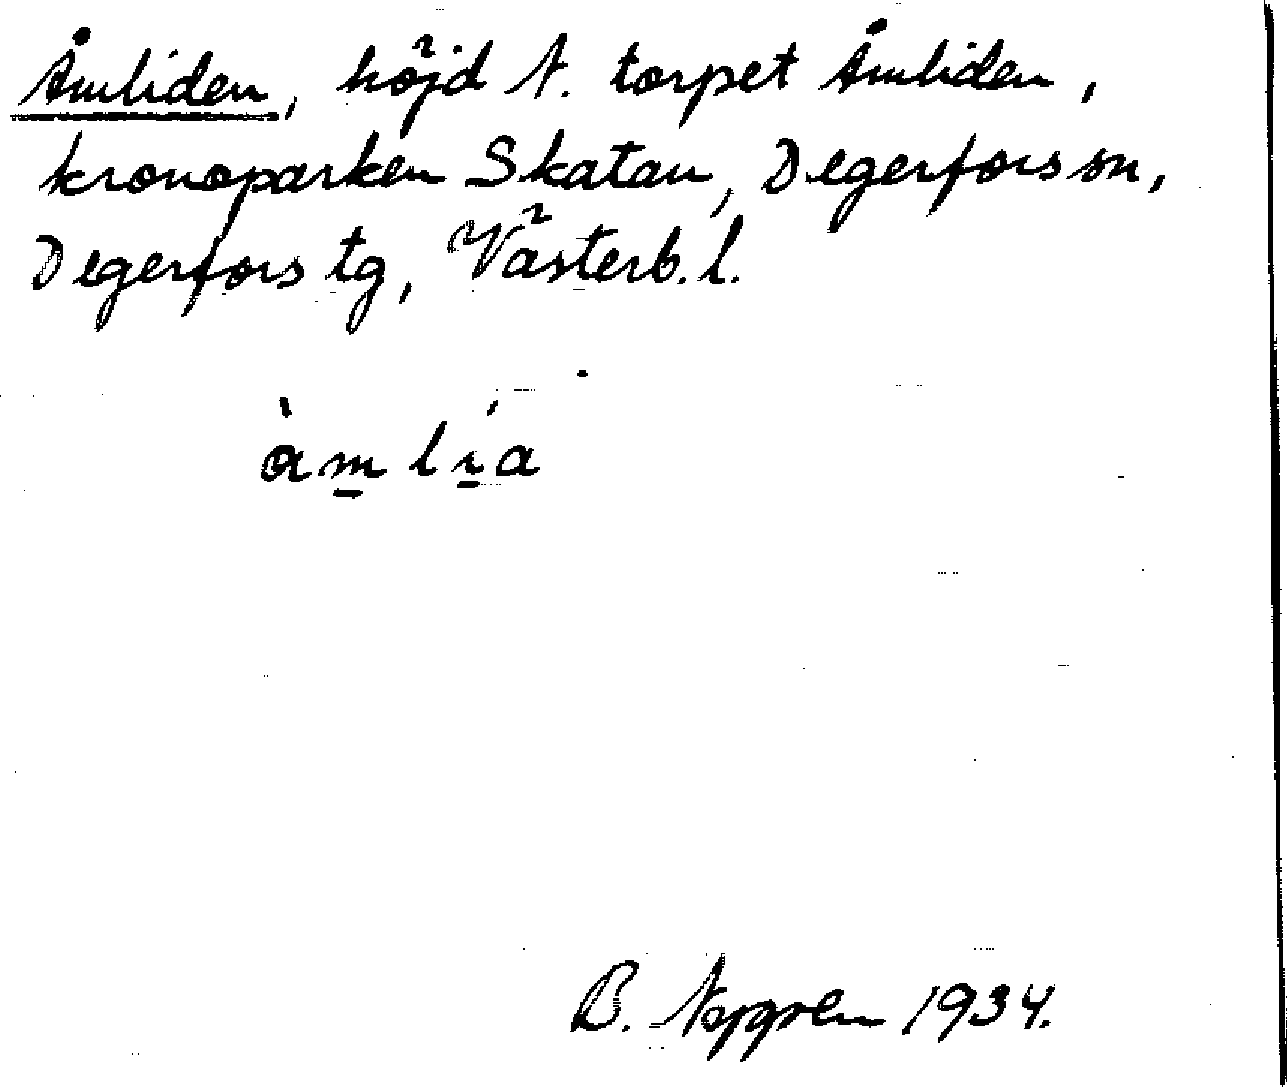 Åmliden, höjd N. torpet Åmliden,
kronoparken Skatan, Degerfors sn,
Degerfors tg, Västerb. l.
àm̲lí̲a
B. 1934.